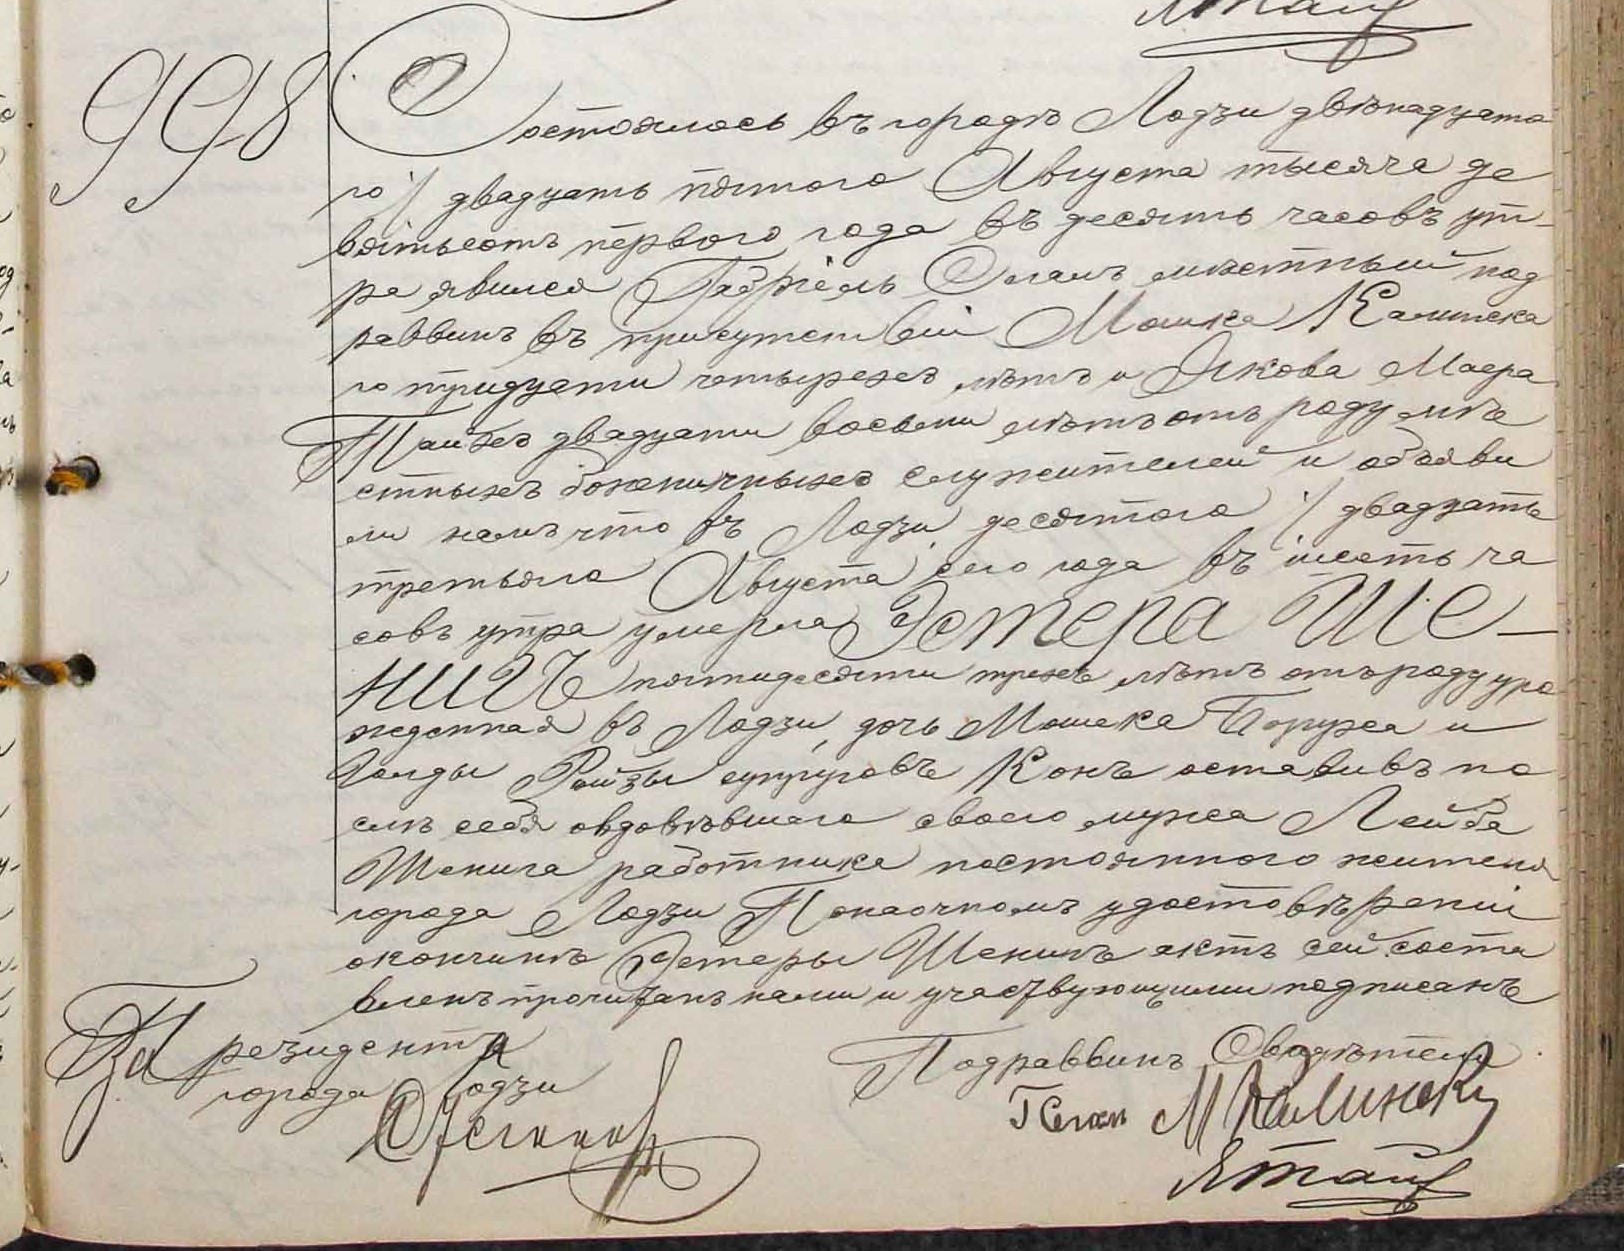 998
Состоялось въ городѣ Лодзи двѣнадцата
го / двадцать пятого Августа тысяча де
вятьсотъ первого года въ десять часовъ ут-
ра явился Габріель Сегалъ мѣстный под
раввинъ въ присутствіи Мошка Калинска
го тридцати четырехъ лѣтъ и Якова Маера
двадцати восьми лѣтъ отъ роду мѣ
стныхъ божничныхъ служителей и объяви
ли намъ что въ Лодзи десятого / двадцать
третьяго Августа сего года въ шесть ча
совъ утра умерла Эстера Ше-
нигъ пятидесяти трехъ лѣтъ отъ роду уро
жденная въ Лодзи, дочь Мошека Боруха и
Голды Ройзы супруговъ Конъ оставивъ по
слѣ себя овдовѣвшаго своего мужа Лейба
Шенига работника постоянного жителя
города Лодзи По наочномъ удостовѣреніи
о кончинѣ Эстеры Шенигъ актъ сей соста
вленъ прочитанъ нами и участвующими подписанъ
За Президента
города Лодзи
Подраввинъ Свидѣтели
М Калински